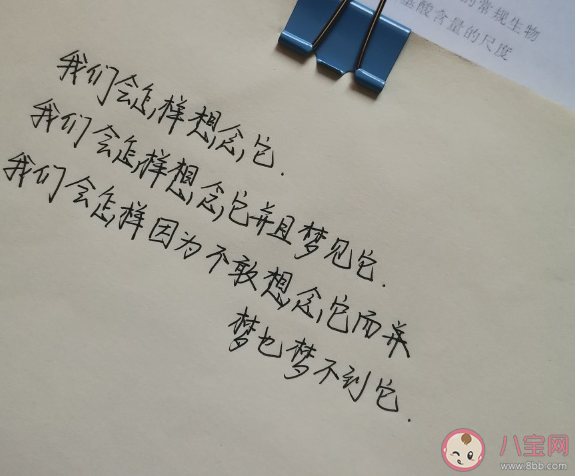 的常规生物
基酸含量的尺度
我们会怎样想念它.
我们会怎样想念它并且梦见它.
我们会怎样因为不敢想念它而
梦也梦不到它.
八宝网
www.8bb.com